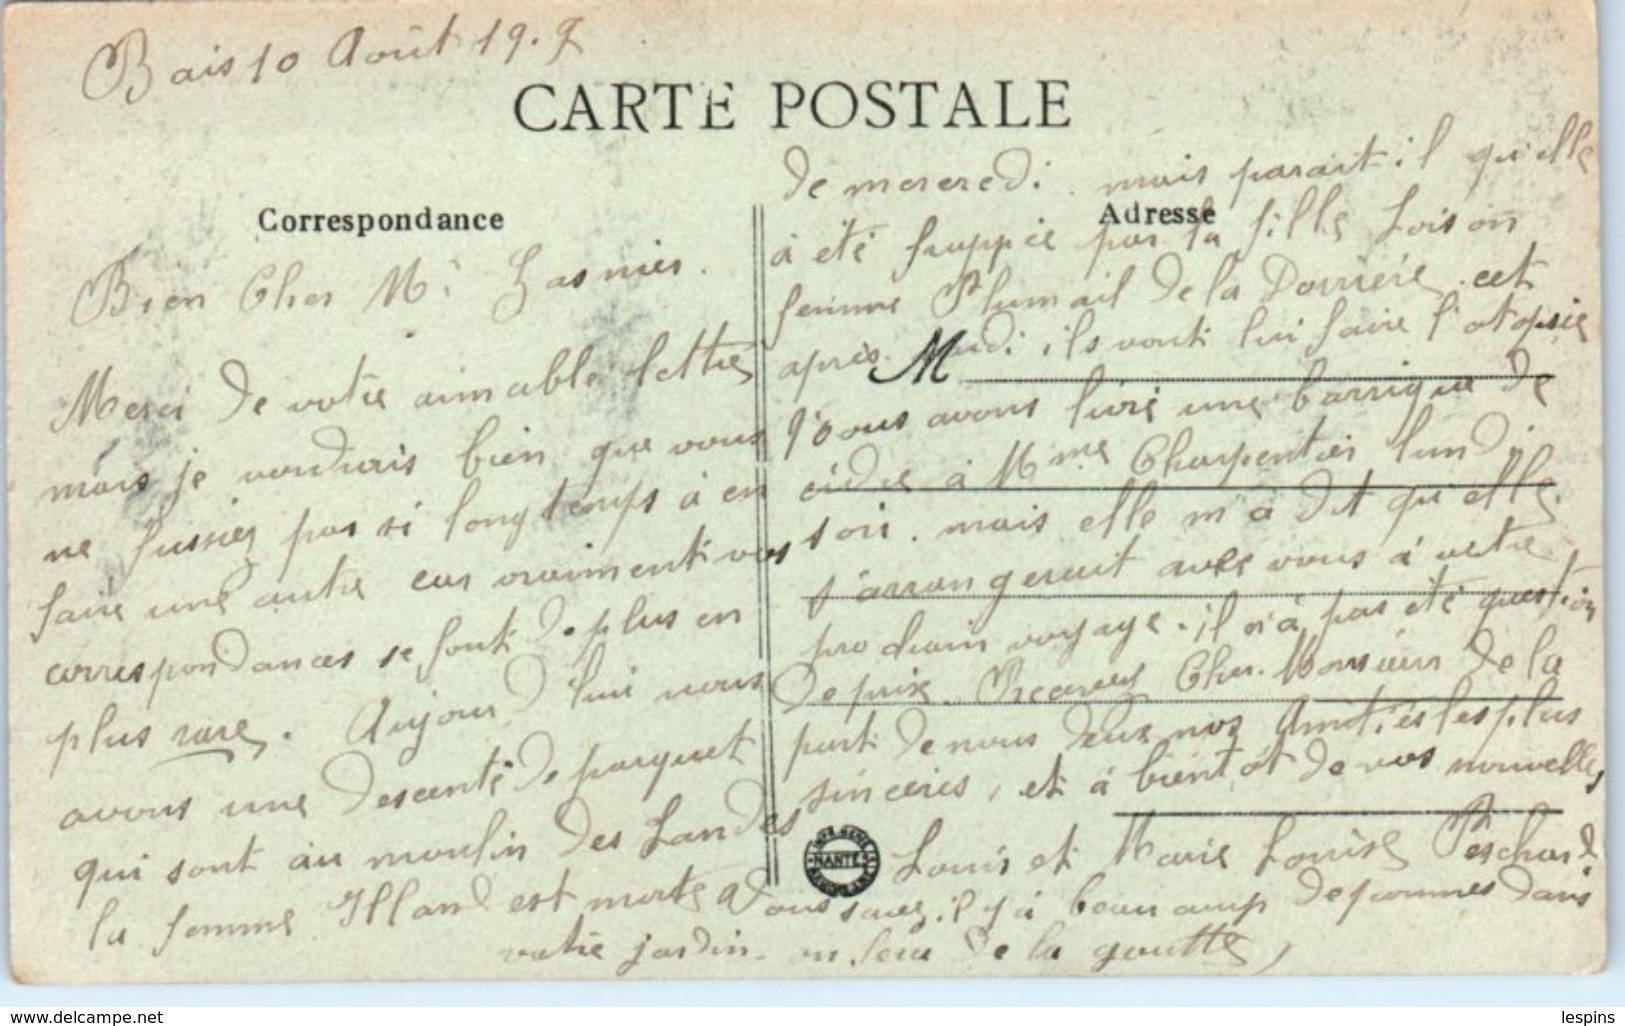 Bais 10 Août 19.9
CARTE POSTALE
Correspondance
Bien Cher Mr Lasnier.
Merci de votre aimable lettre
mais je voudrais bien que vous
ne fussiez pas si longtemps à en
faire une autre car vraiment vos
correspondances se font de plus en
plus rares. Aujourd'hui nous
avons une descente de parquet
qui sont au moulin des Landes
la femme Illand est morte
Adresse
de mercredi. mais parait il qu'elle
à été frappée par la fille Loison
femme Plumail de la Dorrière. cet
après. Midi ils vont lui faire l'atopsie
M
Nous avons livré une barrique de
cidre à Mme Charpentier lundi
soir. mais elle m'a dit qu'elle
s'arrangerait avec vous à votre
prochain voyage. il n'à pas été question
de prix. Recevez Cher. Monsieur de la
part de nous deux nos Amitiés les plus
sincères, et à bientôt de vos nouvelles
Louis et Marie Louise Peschard
Vous savez, il y à beaucoup de pommes dans
votre jardin. on fera de la goutte,
NANTES
www.delcampe.net
lespins